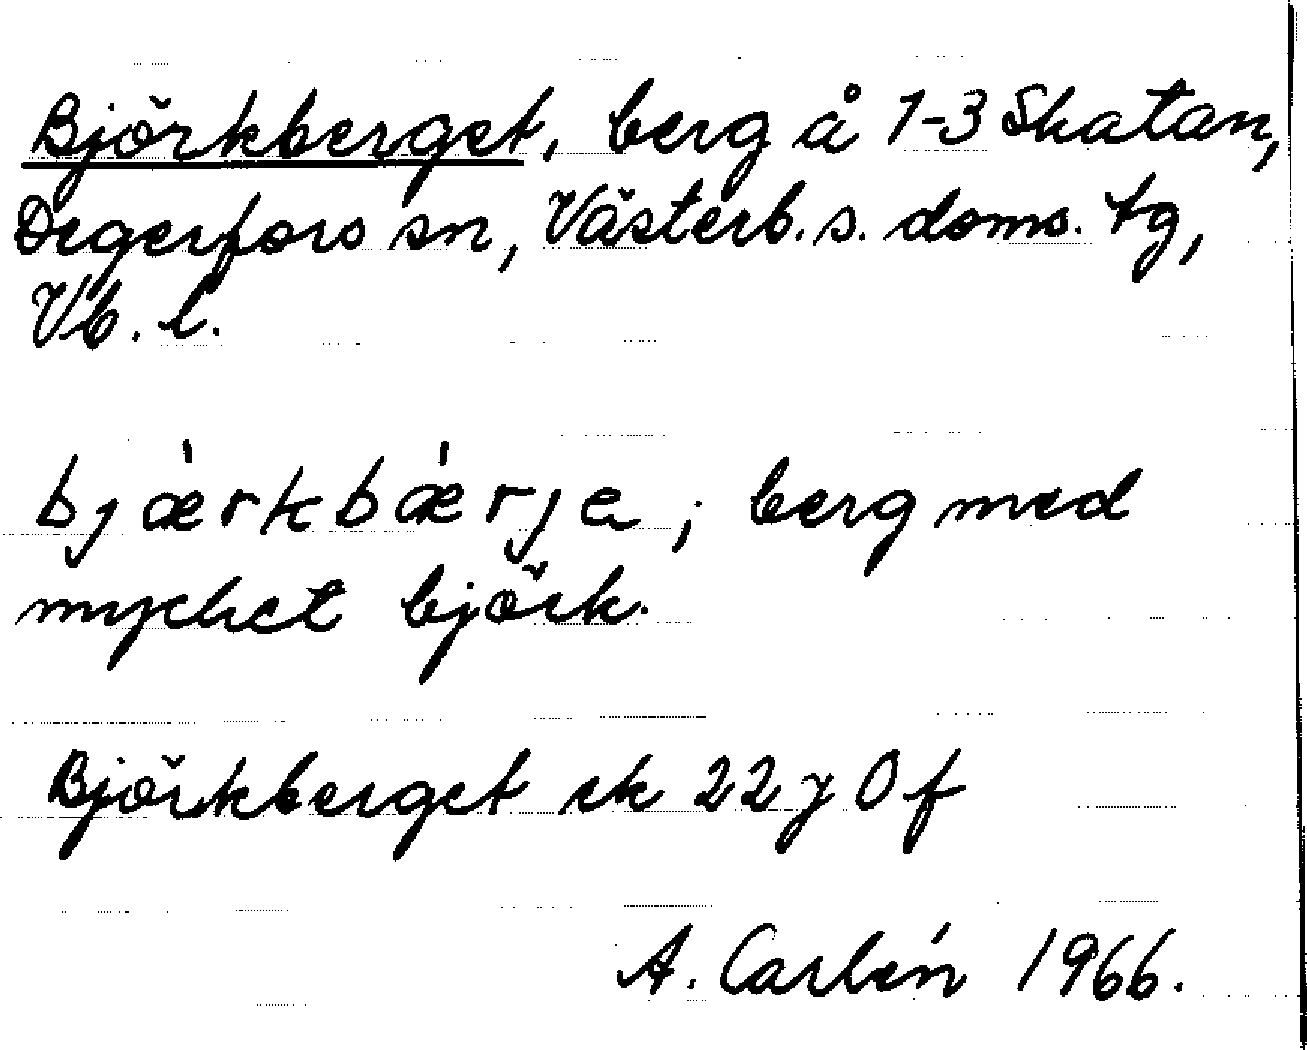 Björkberget, berg å 1-3 Skatan,
Degerfors sn, Västerb. s. doms. tg,
Vb. l.
bjæ̀rkbæ̀rje, berg med
mycket björk.
Björkberget ek 22 y 0 f
A. Carlén 1966.